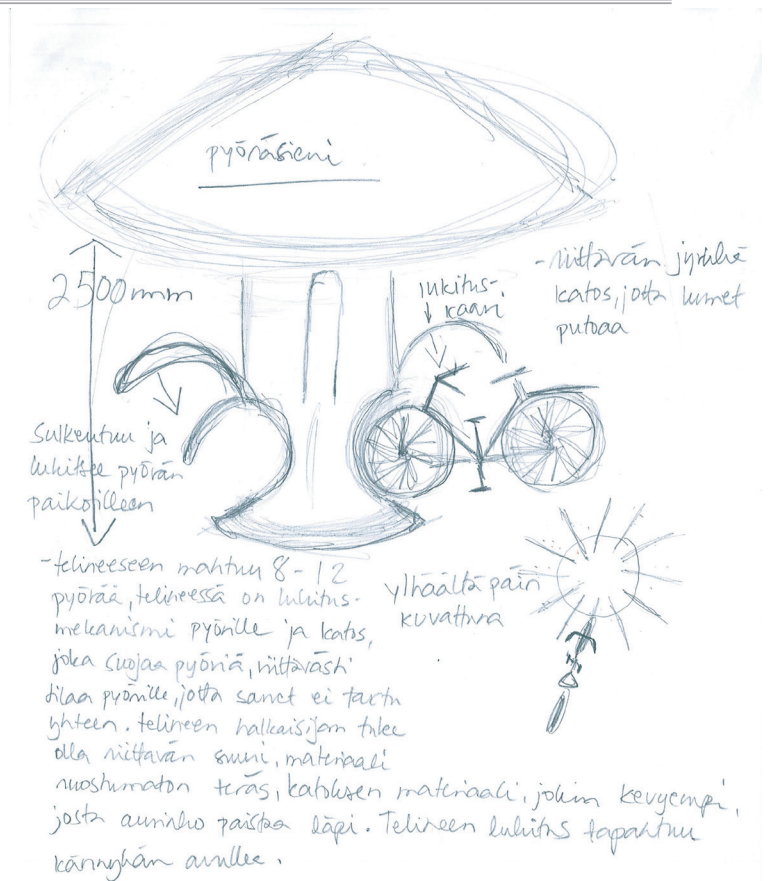 pyöräsieni
2500mm
lukitus-
kaari
-riittävän jyrkkä
katos, jotta lumet
putoaa
sulkeutuu ja
lukitsee pyörän
paikoilleen
-telineeseen mahtuu 8-12
pyörää, telineessä on lukitus-
mekanismi pyörille ja katos,
joka suojaa pyöriä, riittävästi
tilaa pyörille, jotta sarvet ei tartu
yhteen. telineen halkaisijan tulee
olla riittävän suuri, materiaali
ruostumaton teräs, katoksen materiaali, jokin kevyempi,
josta aurinko paistaa läpi. Telineen lukitus tapahtuu
kännykän avullee.
ylhäältä päin
kuvattuna